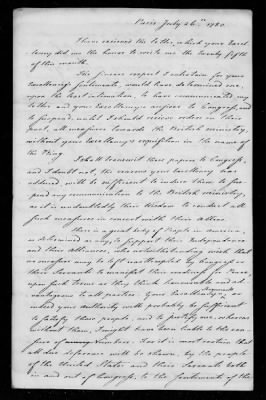 Paris July 26.th 1780.
I have received the Letter, which your Excel-
lency did me the honor to write me the twenty fifth
of this month.
The sincere respect I entertain for your
Excellency's Sentiments, would have determined me,
upon the least intimation, to have communicated my
Letter and your Excellency's answer to Congress, and
to suspend, until I should receive orders in their
part, all measures towards the British ministry,
without your Excellency's requisition in the name of
the King.
I shall transmit these papers to Congress,
and I doubt not, the reasons your Excellency has
adduced will be sufficient to induce them to sus-
pend any communication to the British ministry,
as it is undoubtedly their Wisdom to conduct all
such measures in concert with their Allies.
There is a great body of People in America,
as determined as any to support their Independence
and their Alliances, who notwithstanding wish that
no measure may be left unattempted by Congress or
their Servants to manifest their readiness for Peace,
upon such Terms as they think honourable and ad-
vantageous to all parties. Your Excellency's
indeed your authority will probably be sufficient
to satisfy these people, and to justify me, whereas
without them, I might have been liable to the cen-
sure of many. For it is most certain that
all due deference will be shewn, by the people
of the United States and their Servants both
in and out of Congress, to the Sentiments of the